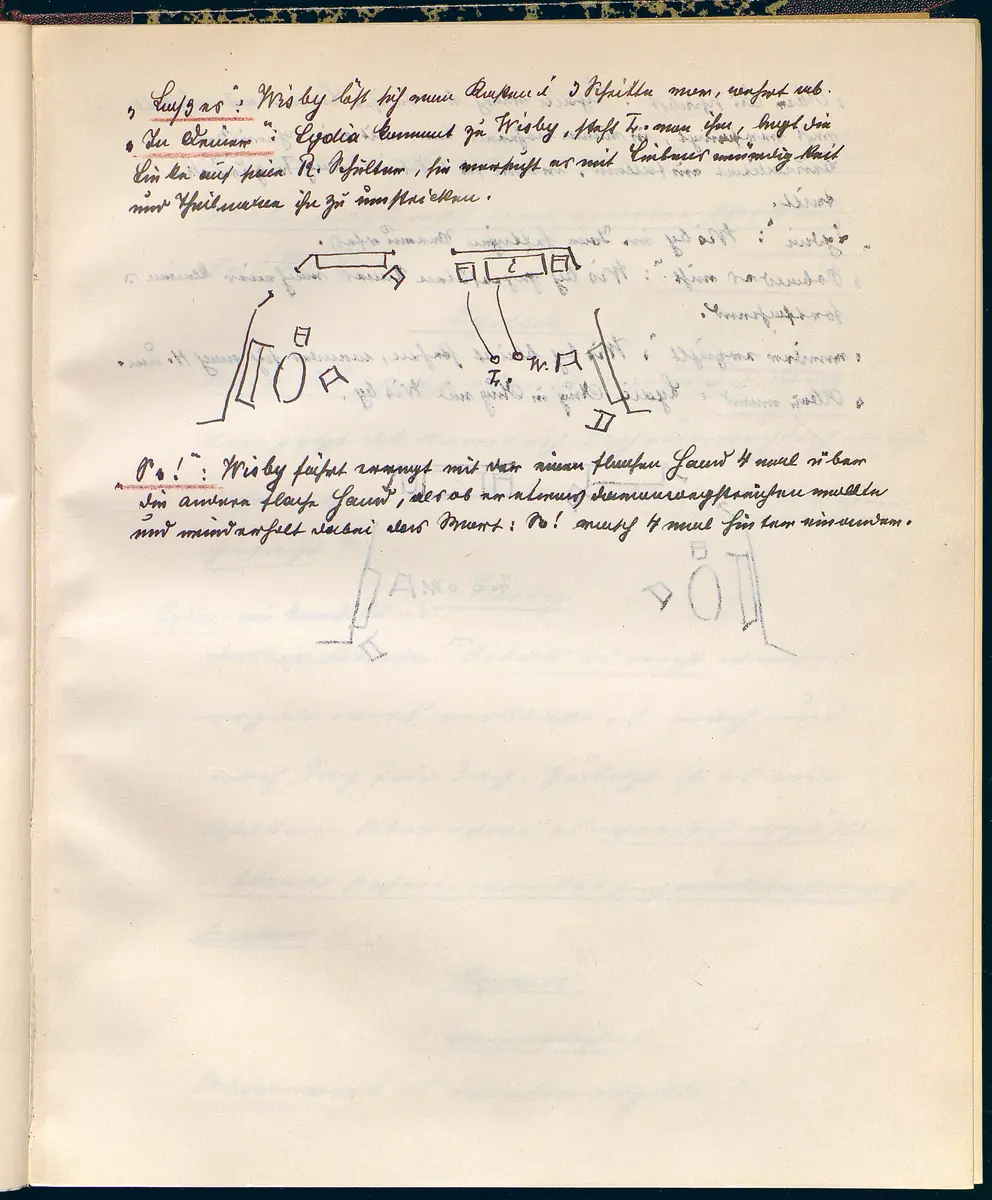 „Lass es“: Wisby läst sich vom Kaken i 3 Schritte vor, wehrt ab.
„In Deiner“: Lydia kommt zu Wisby, steht L. von ihm, legt die
Linke auf seine R. Schulter, sie versucht es mit Liebenswürdigkeit
und Theilnahme ihn zu umstricken.
L.
W.
„So!“: Wisby fährt erregt mit der einen flachen Hand 4 mal über
die andere flache Hand, als ob er etwas davonwegstreichen wollte
und wiederholt dabei das Wort: So! rasch 4 mal hintereinander.